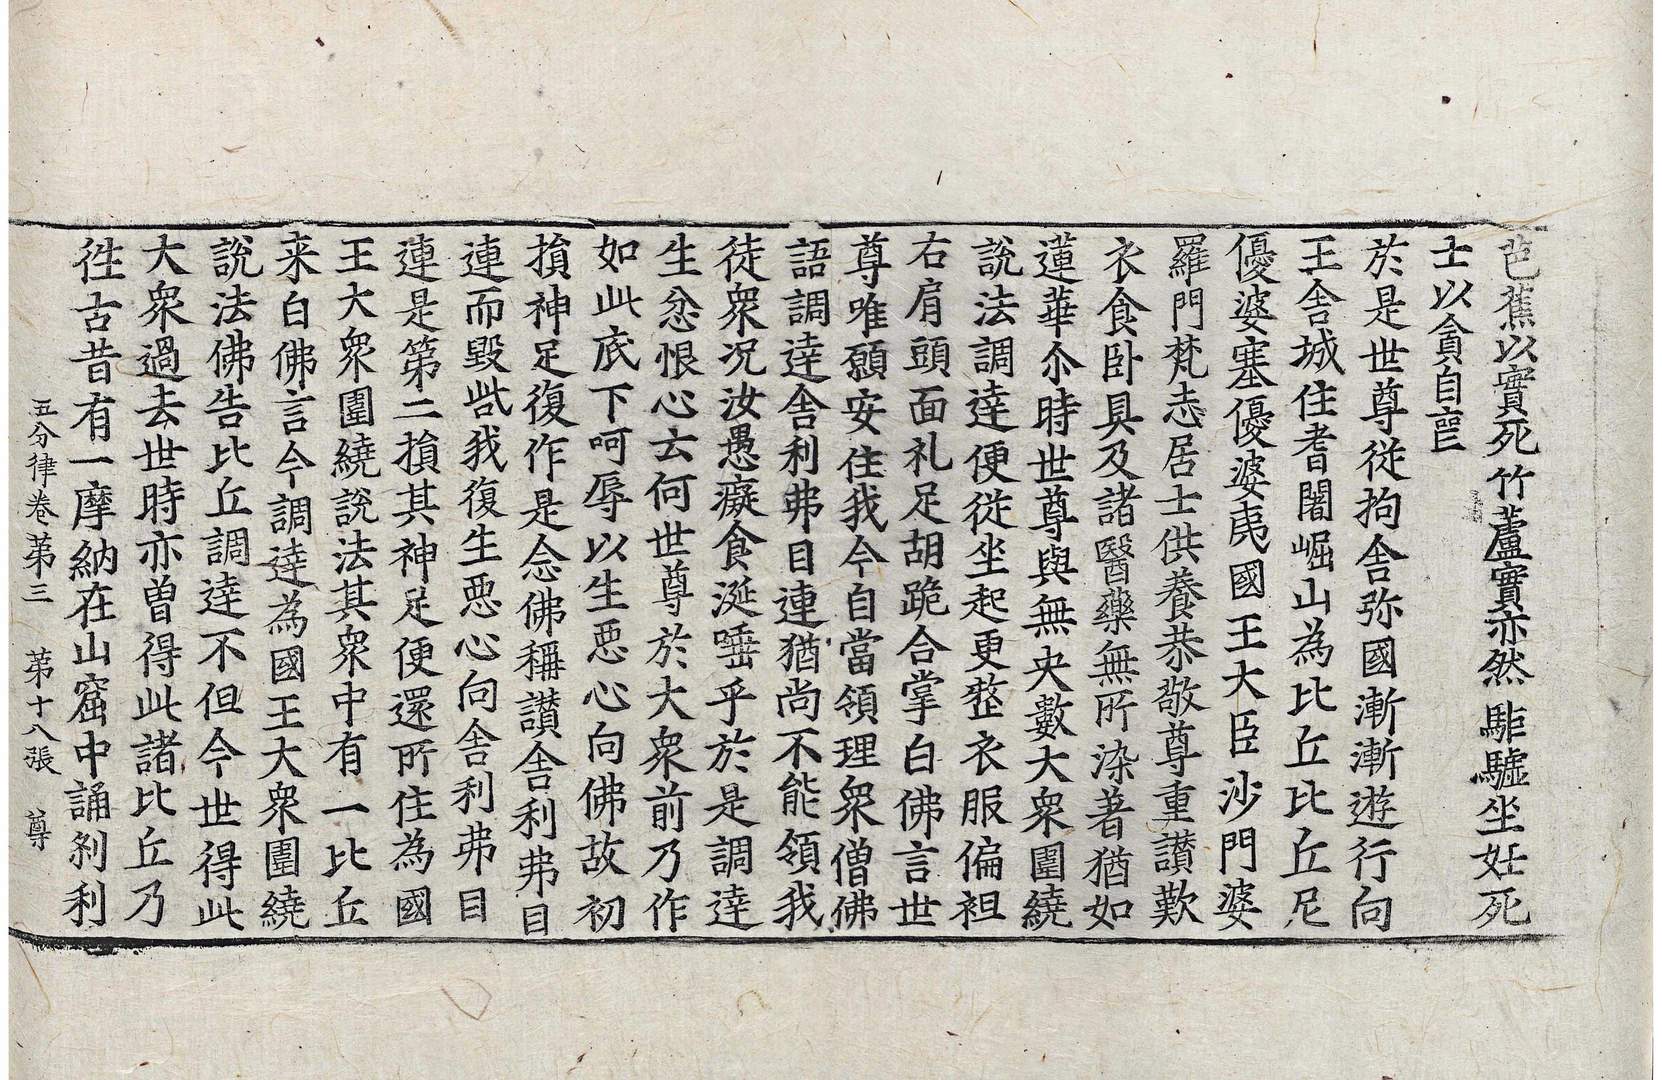 芭蕉以實死 竹蘆實亦然 駏驉坐妊死
士以貪自喪
於是世尊從拘舎弥國漸漸遊行向
王舎城住耆闍崛山為比丘比丘尼
優婆塞優婆夷國王大臣沙門婆
羅門梵志居士供養恭敬尊重讃歎
衣食卧具及諸醫藥無所染著猶如
蓮華尒時世尊與無央數大衆圍繞
說法調逹便從坐起更整衣服偏袒
右肩頭面礼足胡跪合掌白佛言世
尊唯願安住我今自當領理衆僧佛
語調逹舎利弗目連猶尚不能領我
徒衆況汝愚癡食涎唾乎於是調逹
生忿恨心云何世尊於大衆前乃作
如此底下呵辱以生惡心向佛故初
損神足復作是念佛稱讃舎利弗目
連而毀呰我復生惡心向舎利弗目
連是第二損其神足便還所住為國
王大衆圍繞說法其衆中有一比丘
来白佛言今調逹為國王大衆圍繞
說法佛告比丘調逹不但今世得此
大衆過去世時亦曽得此諸比丘乃
徃古昔有一摩納在山窟中誦刹利
五分律卷第三 第十八張 尊